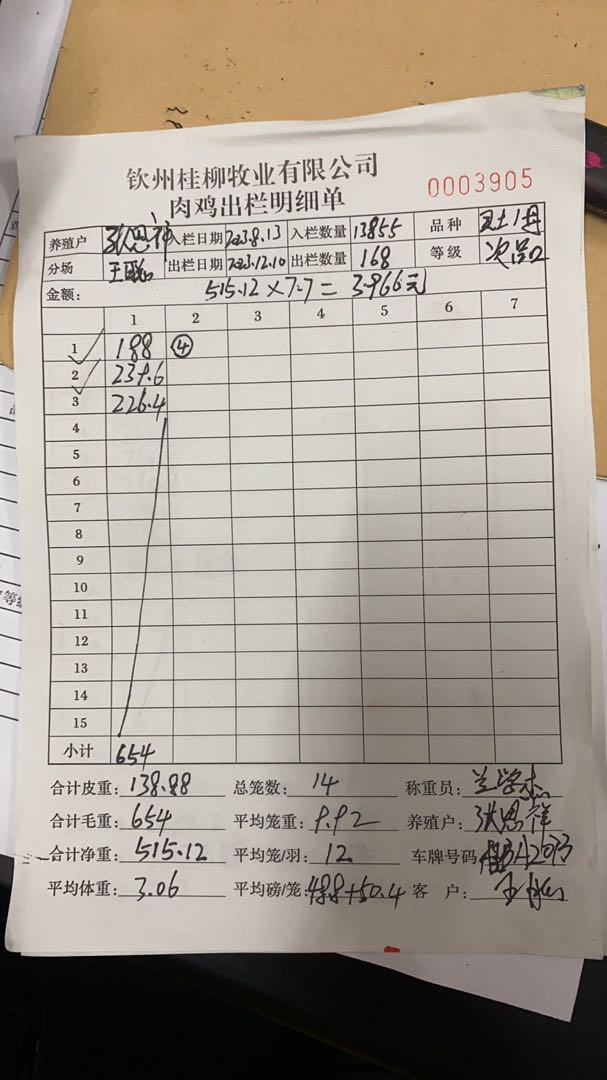 钦州桂柳牧业有限公司
肉鸡出栏明细单
0003905
养殖户 张恩祥 入栏日期 2023.8.13 入栏数量 13855 品种
分场 王聪 出栏日期 2023.12.10 出栏数量 168 等级 次品
金额: 515.12×7.7=3966元
1 2 3 4 5 6 7
1 188 ④
2 239.6
3 226.4
4
5
6
7
8
9
10
11
12
13
14
15
小计 654
合计皮重: 138.88 总笼数: 14 称重员:
合计毛重: 654 平均笼重: 9.92 养殖户: 张恩祥
合计净重: 515.12 平均笼/羽: 12 车牌号码
平均体重: 3.06 平均磅/笼: 4.8.8+50.4 客 户: